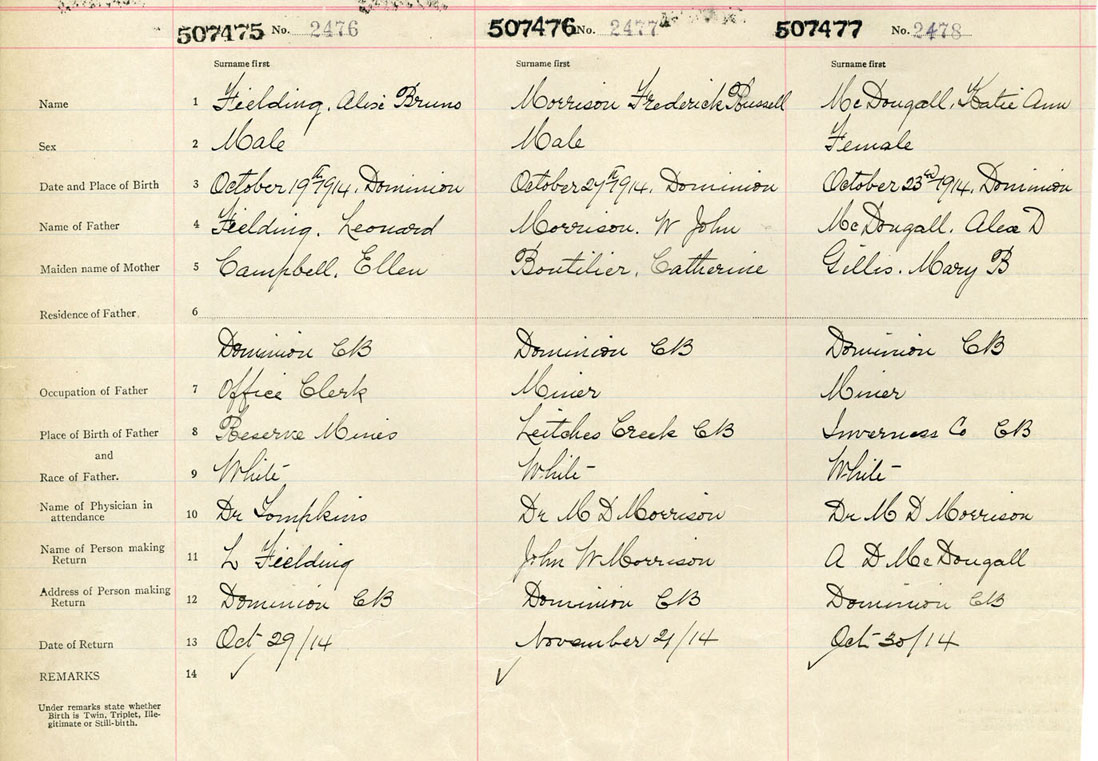 507475 No. 2476 507476 No. 2477 507477 No. 2478
Surname first Surname first Surname first
Name 1 Fielding, Alise Bruno Morrison Frederick Russell McDougall, Katie Ann
Sex 2 Male Male Female
Date and Place of Birth 3 October 19th 1914, Dominion October 27th 1914, Dominion October 23rd 1914, Dominion
Name of Father 4 Fielding, Leonard Morrison, W John McDougall, Alex D
Maiden name of Mother 5 Campbell, Ellen Boutilier, Catherine Gillis, Mary B
Residence of Father 6
Dominion CB Dominion CB Dominion CB
Occupation of Father 7 Office Clerk Miner Miner
Place of Birth of Father 8 Reserve Mines Leitches Creek CB Inverness Co CB
and
Race of Father. 9 White White White
Name of Physician in
attendance 10 Dr Tompkins Dr M D Morrison Dr M D Morrison
Name of Person making
Return 11 L Fielding John W Morrison A D McDougall
Address of Person making
Return 12 Dominion CB Dominion CB Dominion CB
Date of Return 13 Oct 29/14 November 21/14 Oct 30/14
REMARKS 14
Under remarks state whether
Birth is Twin, Triplet, Ille-
gitimate or Still-birth.